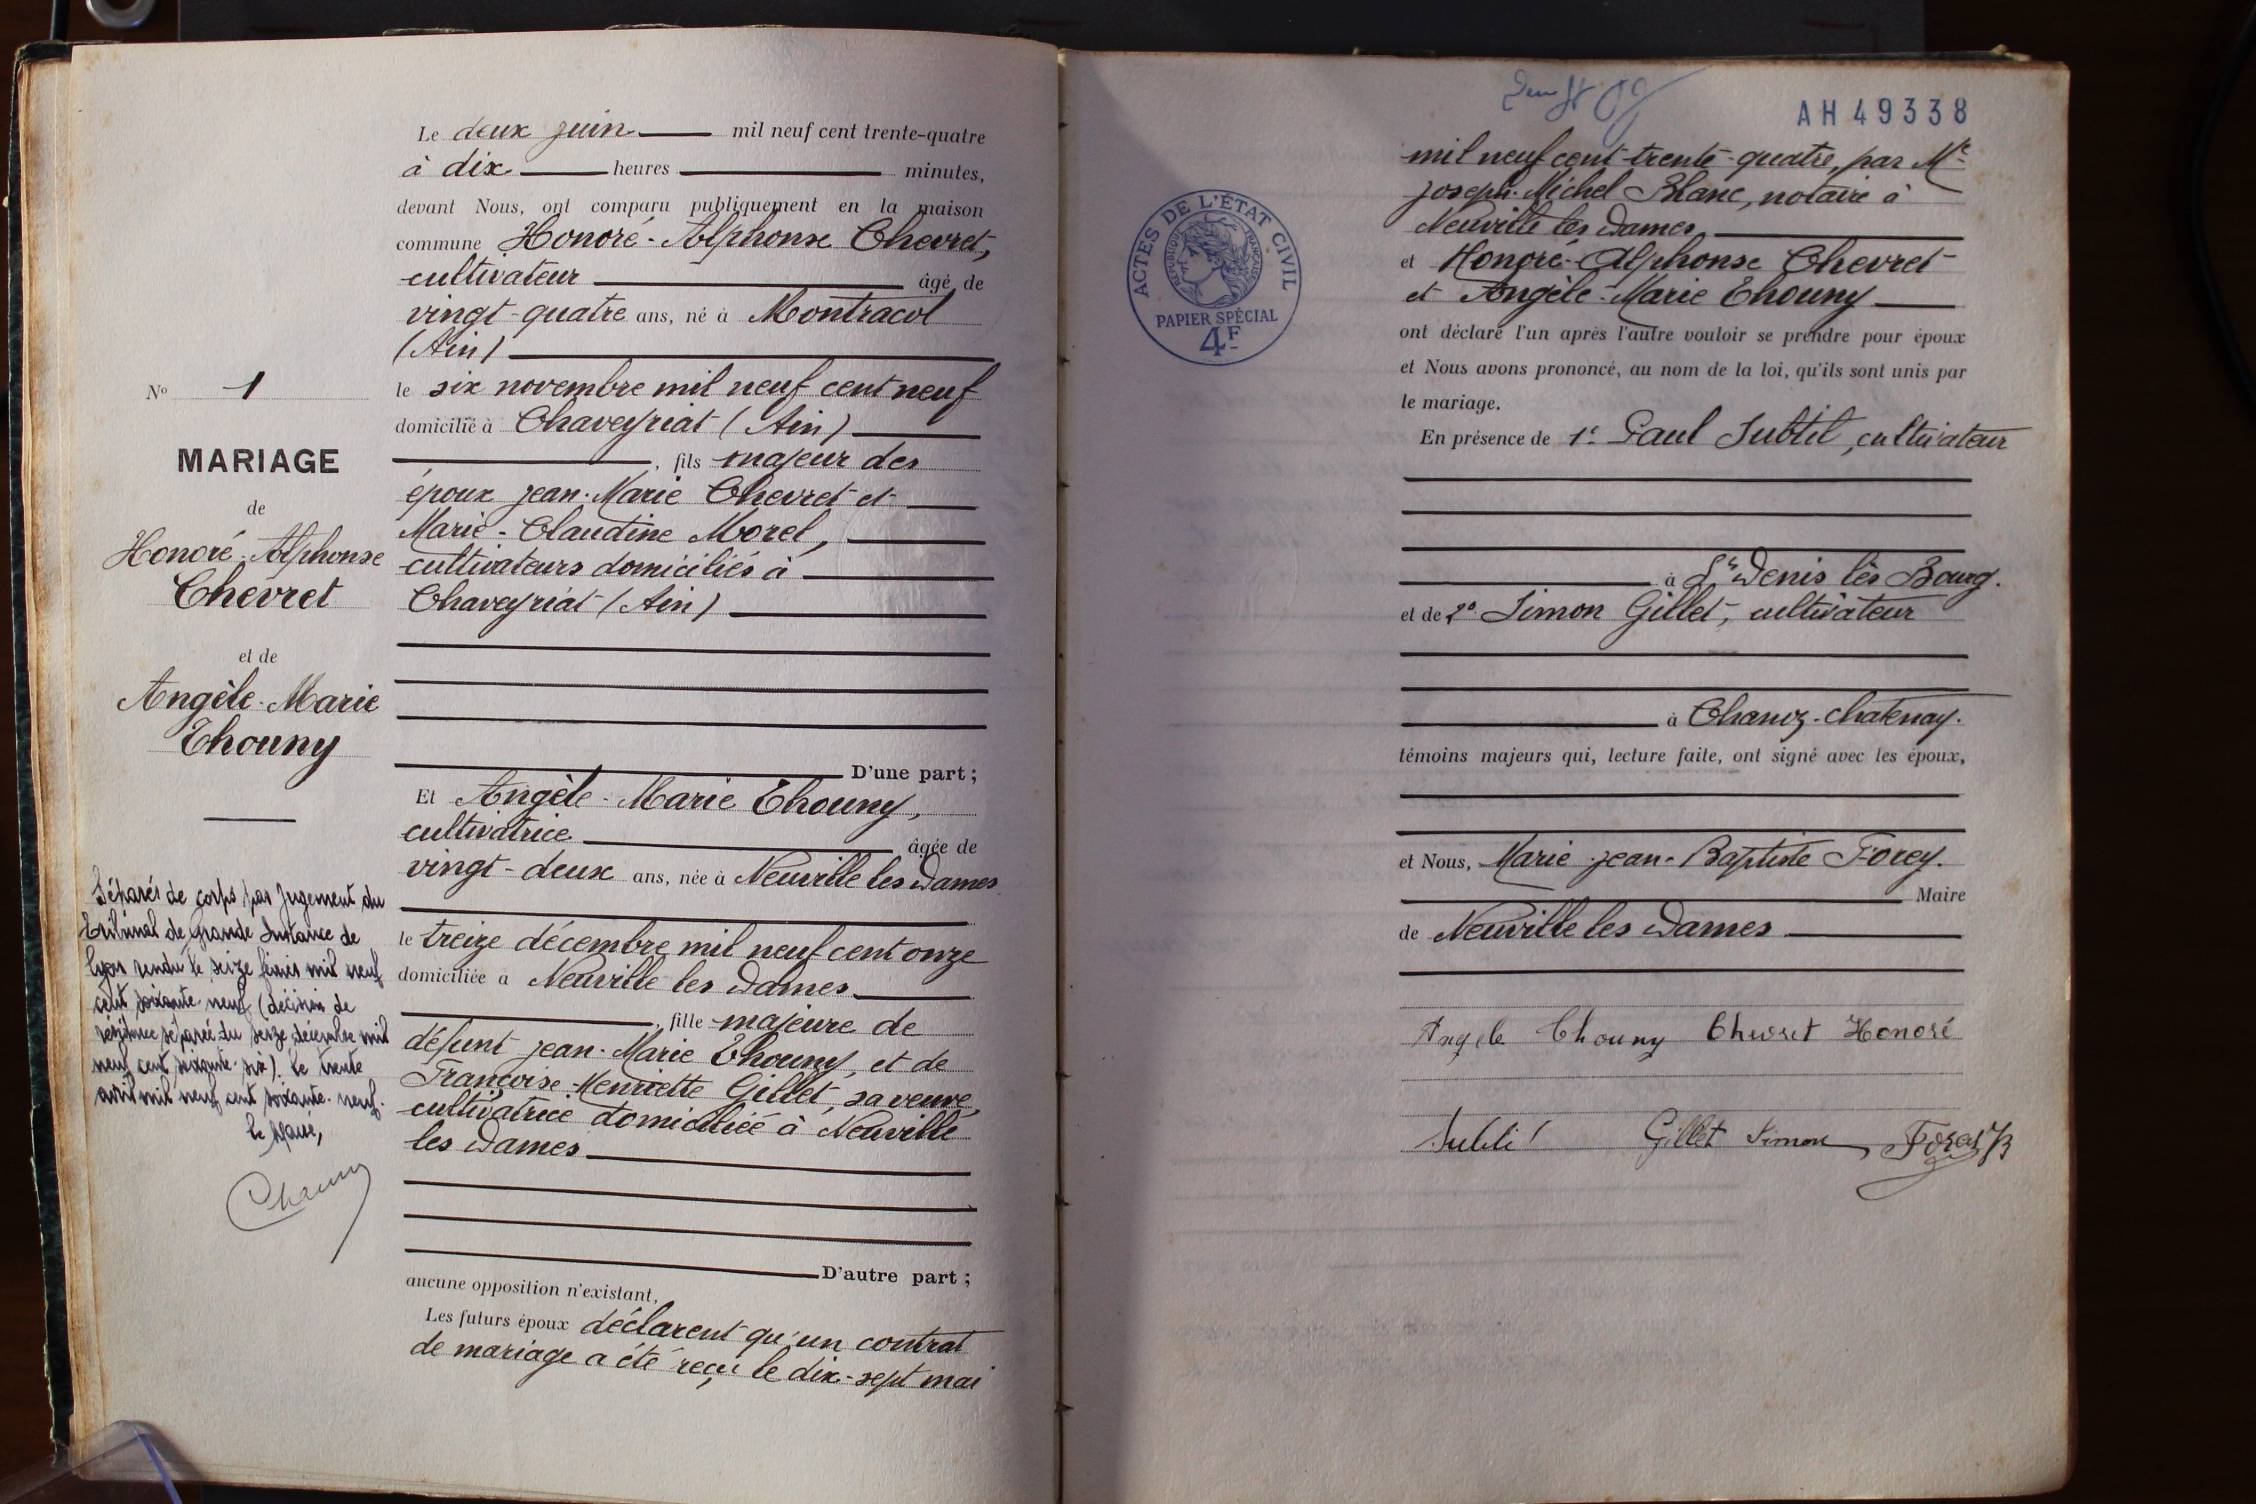 Le deux juin mil neuf cent trente-quatre
à dix heures minutes,
devant Nous, ont comparu publiquement en la maison
commune Honoré-Alphonse Chevret,
cultivateur âgé de
vingt-quatre ans, né à Montracol
(Ain)
le six novembre mil neuf cent neuf
domicilié à Chaveyriat (Ain)
, fils majeur des
époux Jean-Marie Chevret et
Marie-Claudine Morel,
cultivateurs domiciliés à
Chaveyriat (Ain)
D'une part ;
Et Angèle-Marie Thouny,
cultivatrice âgée de
vingt-deux ans, née à Neuville les Dames
le treize décembre mil neuf cent onze
domiciliée à Neuville les Dames
, fille majeure de
défunt Jean-Marie Thouny, et de
Françoise-Henriette Gillet, sa veuve,
cultivatrice domiciliée à Neuville
les Dames
D'autre part ;
aucune opposition n'existant,
Les futurs époux déclarent qu'un contrat
de mariage a été reçu le dix-sept mai
No 1
MARIAGE
de
Honoré-Alphonse
Chevret
et de
Angèle-Marie
Thouny
Séparés de corps par Jugement du
Tribunal de Grande Instance de
Lyon rendu le seize février mil neuf
cent soixante neuf (décision de
résidence séparée du seize décembre mil
neuf cent soixante-six). Le trente
avril mil neuf cent soixante-neuf.
Le Maire,
AH 49338
ACTES DE L'ÉTAT CIVIL
RÉPUBLIQUE FRANÇAISE
PAPIER SPÉCIAL
4F
mil neuf cent trente-quatre, par Me
Joseph-Michel Blanc, notaire à
Neuville les Dames
et Honoré-Alphonse Chevret
et Angèle-Marie Thouny
ont déclaré l'un après l'autre vouloir se prendre pour époux
et Nous avons prononcé, au nom de la loi, qu'ils sont unis par
le mariage.
En présence de 1° Paul Subtil, cultivateur
à St Denis lès Bourg.
et de 2° Simon Gillet, cultivateur
à Chanoz-Chatenay.
témoins majeurs qui, lecture faite, ont signé avec les époux,
et Nous, Marie Jean-Baptiste Forey.
Maire
de Neuville les Dames
Angele Thouny Chevret Honoré
Subtil Gillet Simon Forey